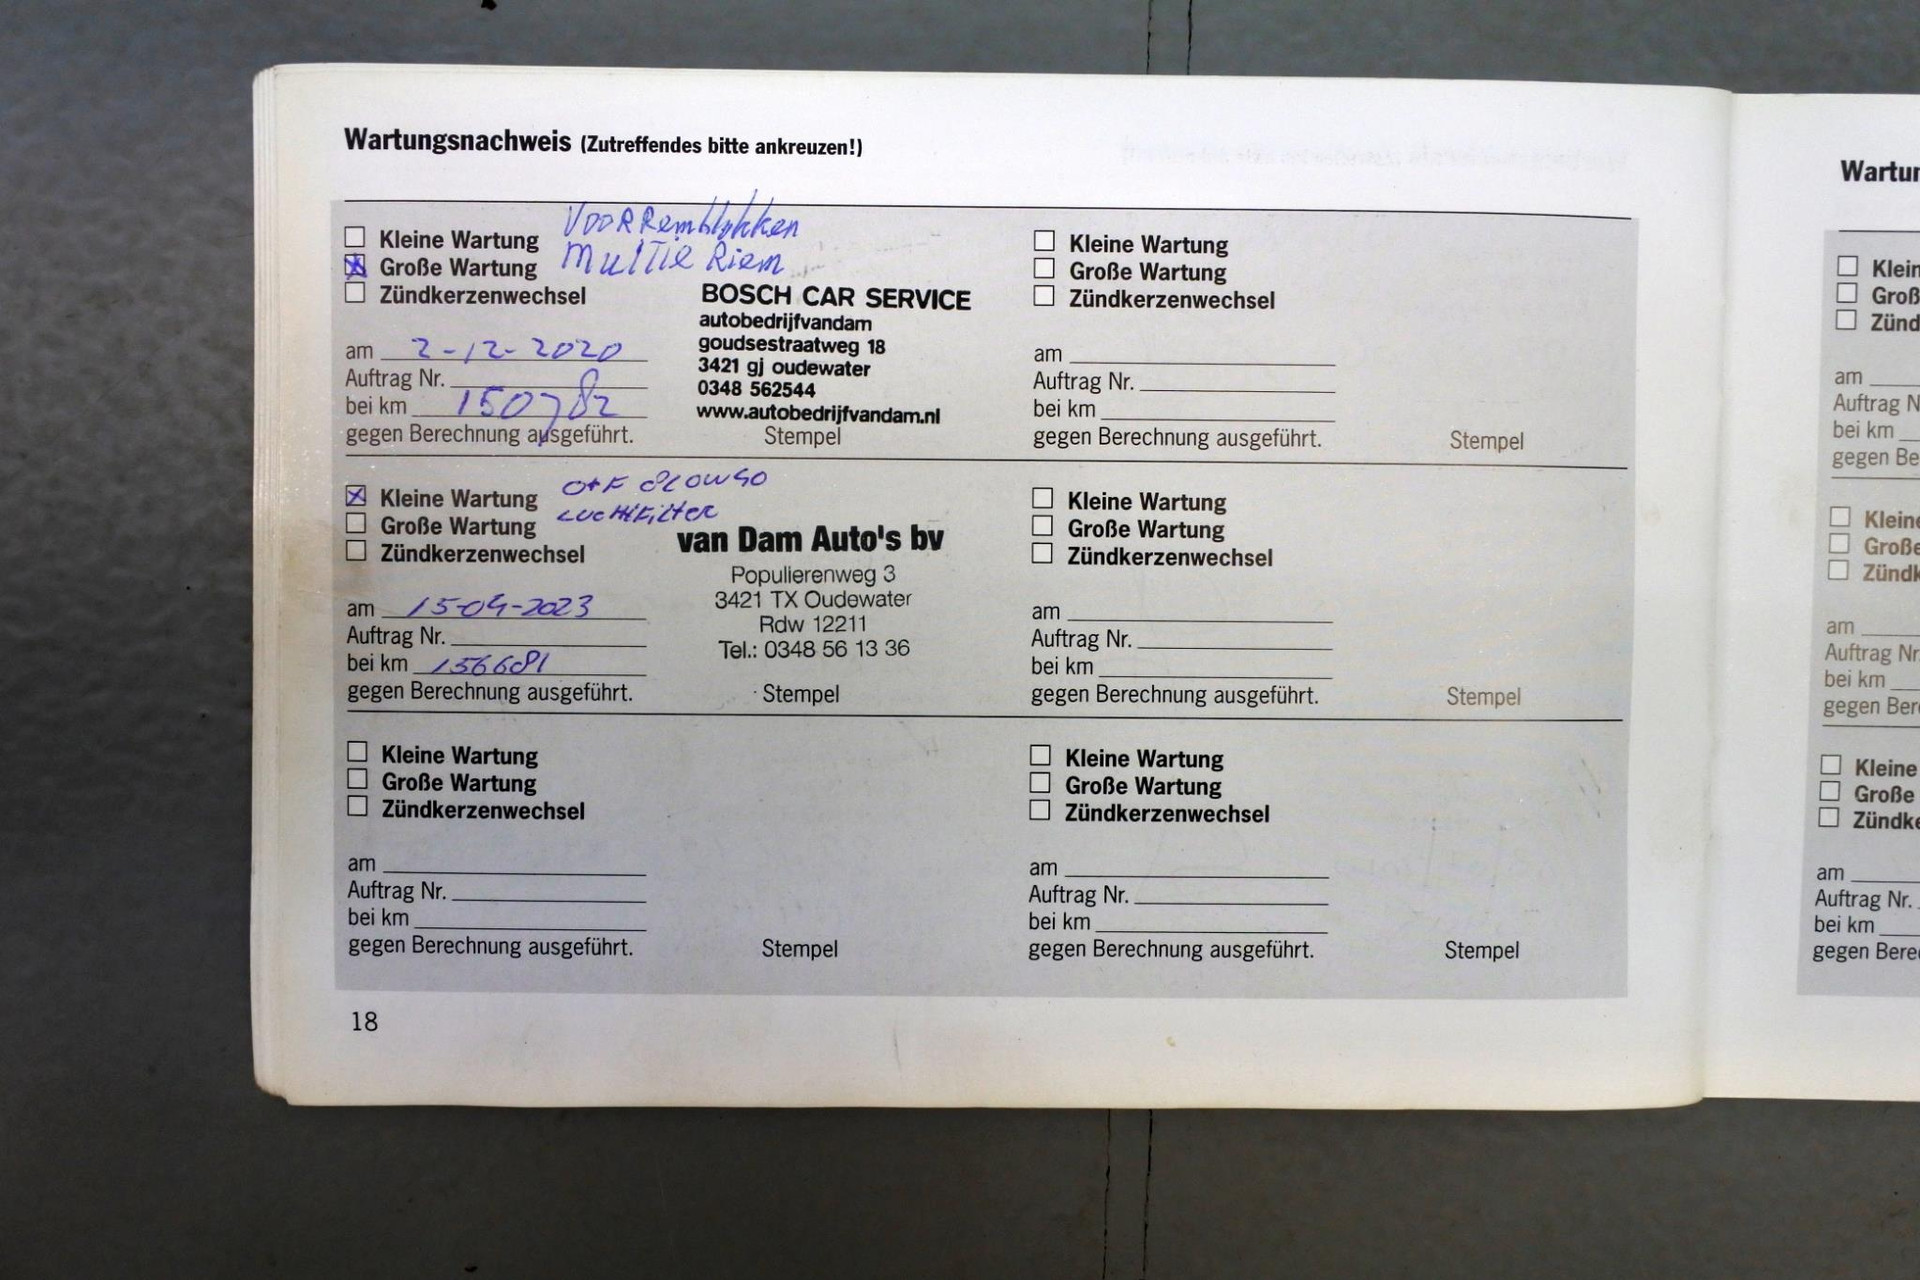 Wartungsnachweis (Zutreffendes bitte ankreuzen!)
Kleine Wartung
Große Wartung
Zündkerzenwechsel
VOORRemblokken
Multie Riem
BOSCH CAR SERVICE
autobedrijfvandam
goudsestraatweg 18
3421 gj oudewater
0348 562544
www.autobedrijfvandam.nl
am 2-12-2020
Auftrag Nr.
bei km 150782
gegen Berechnung ausgeführt.
Stempel
Kleine Wartung
Große Wartung
Zündkerzenwechsel
am
Auftrag Nr.
bei km
gegen Berechnung ausgeführt.
Stempel
Kleine Wartung
Große Wartung
Zündkerzenwechsel
LUCHtFilter
van Dam Auto's bv
Populierenweg 3
3421 TX Oudewater
Rdw 12211
Tel.: 0348 56 13 36
am 15-04-2023
Auftrag Nr.
bei km 156681
gegen Berechnung ausgeführt.
Stempel
Kleine Wartung
Große Wartung
Zündkerzenwechsel
am
Auftrag Nr.
bei km
gegen Berechnung ausgeführt.
Stempel
Kleine Wartung
Große Wartung
Zündkerzenwechsel
am
Auftrag Nr.
bei km
gegen Berechnung ausgeführt.
Stempel
Kleine Wartung
Große Wartung
Zündkerzenwechsel
am
Auftrag Nr.
bei km
gegen Berechnung ausgeführt.
Stempel
18
Wartun
Klein
Groß
Zünd
am
Auftrag N
bei km
gegen Be
Kleine
Große
Zündk
am
Auftrag Nr
bei km
gegen Ber
Kleine
Große
Zündke
am
Auftrag Nr.
bei km
gegen Bere